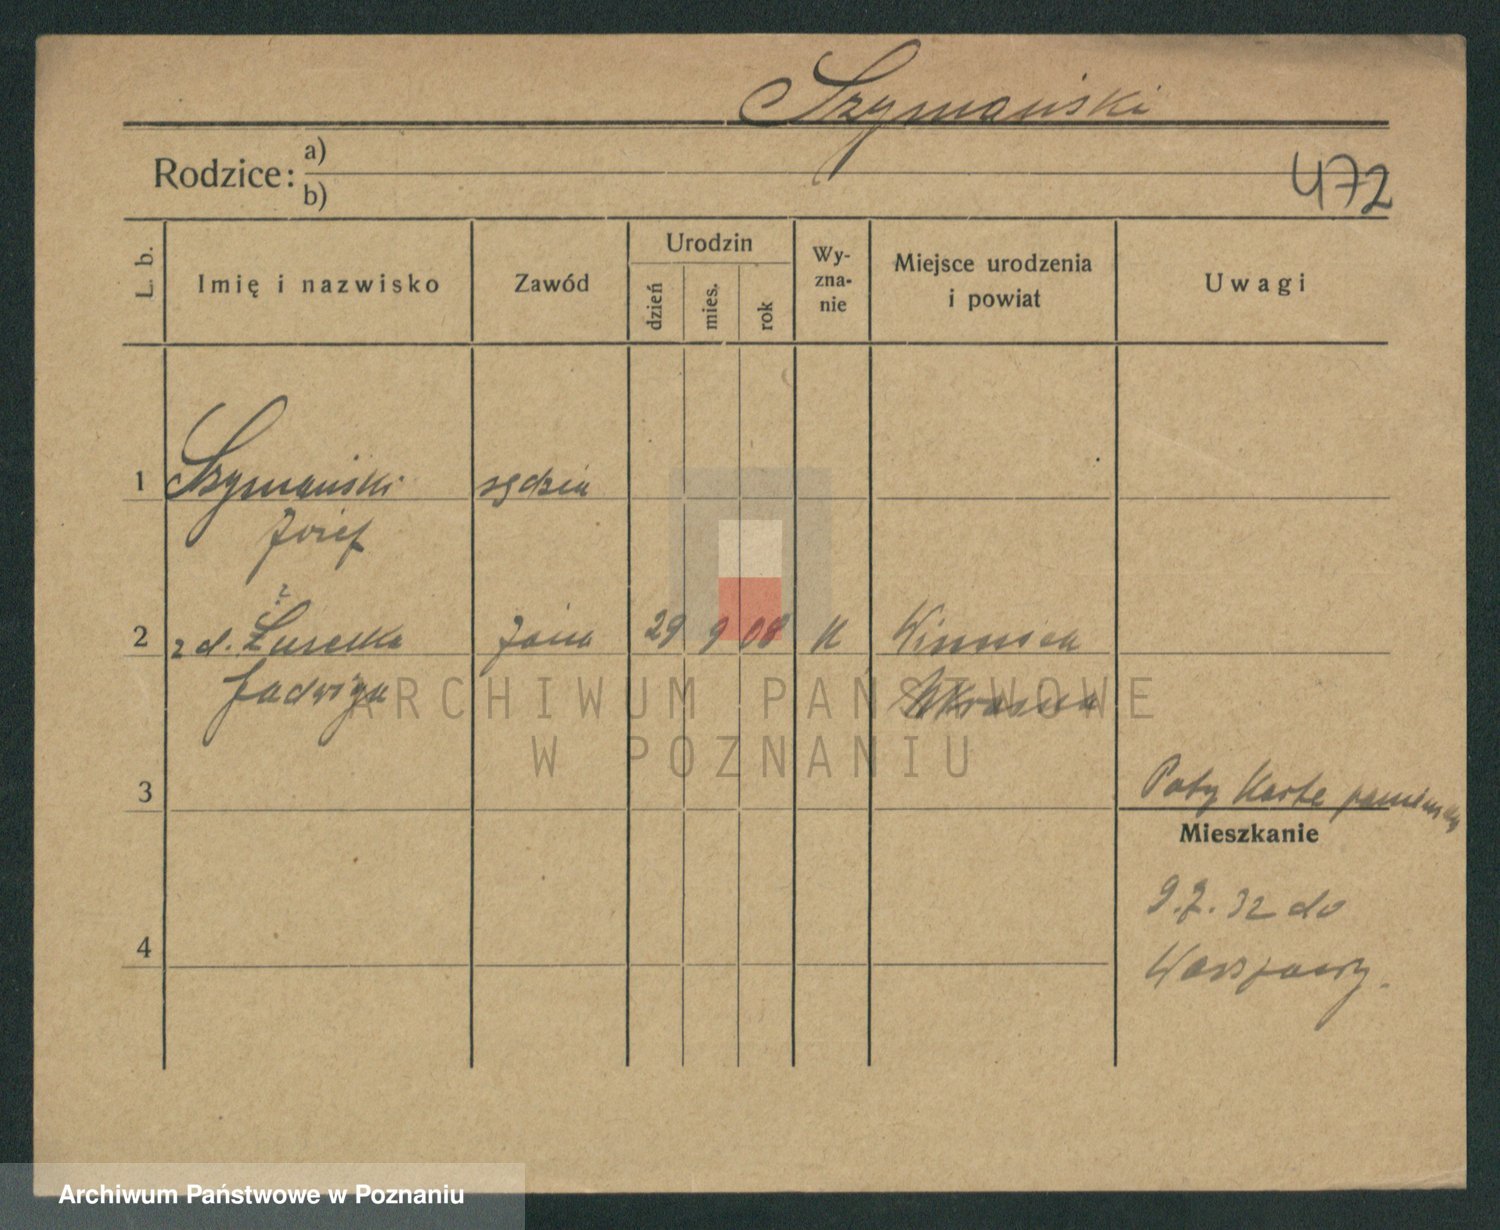 Szymański
Rodzice: a)
b)
472
L. b.
Imię i nazwisko
Zawód
Urodzin
dzień
mies.
rok
Wy-
zna-
nie
Miejsce urodzenia
i powiat
Uwagi
1 Szymański sędzia
Józef
2 z d. Żurelka żona 29 9 08 K Winnica
Jadwiga Ukraina
3
Mieszkanie
9.7.32 do
4
Warszawy.
ARCHIWUM PAŃSTWOWE
W POZNANIU
Archiwum Państwowe w Poznaniu